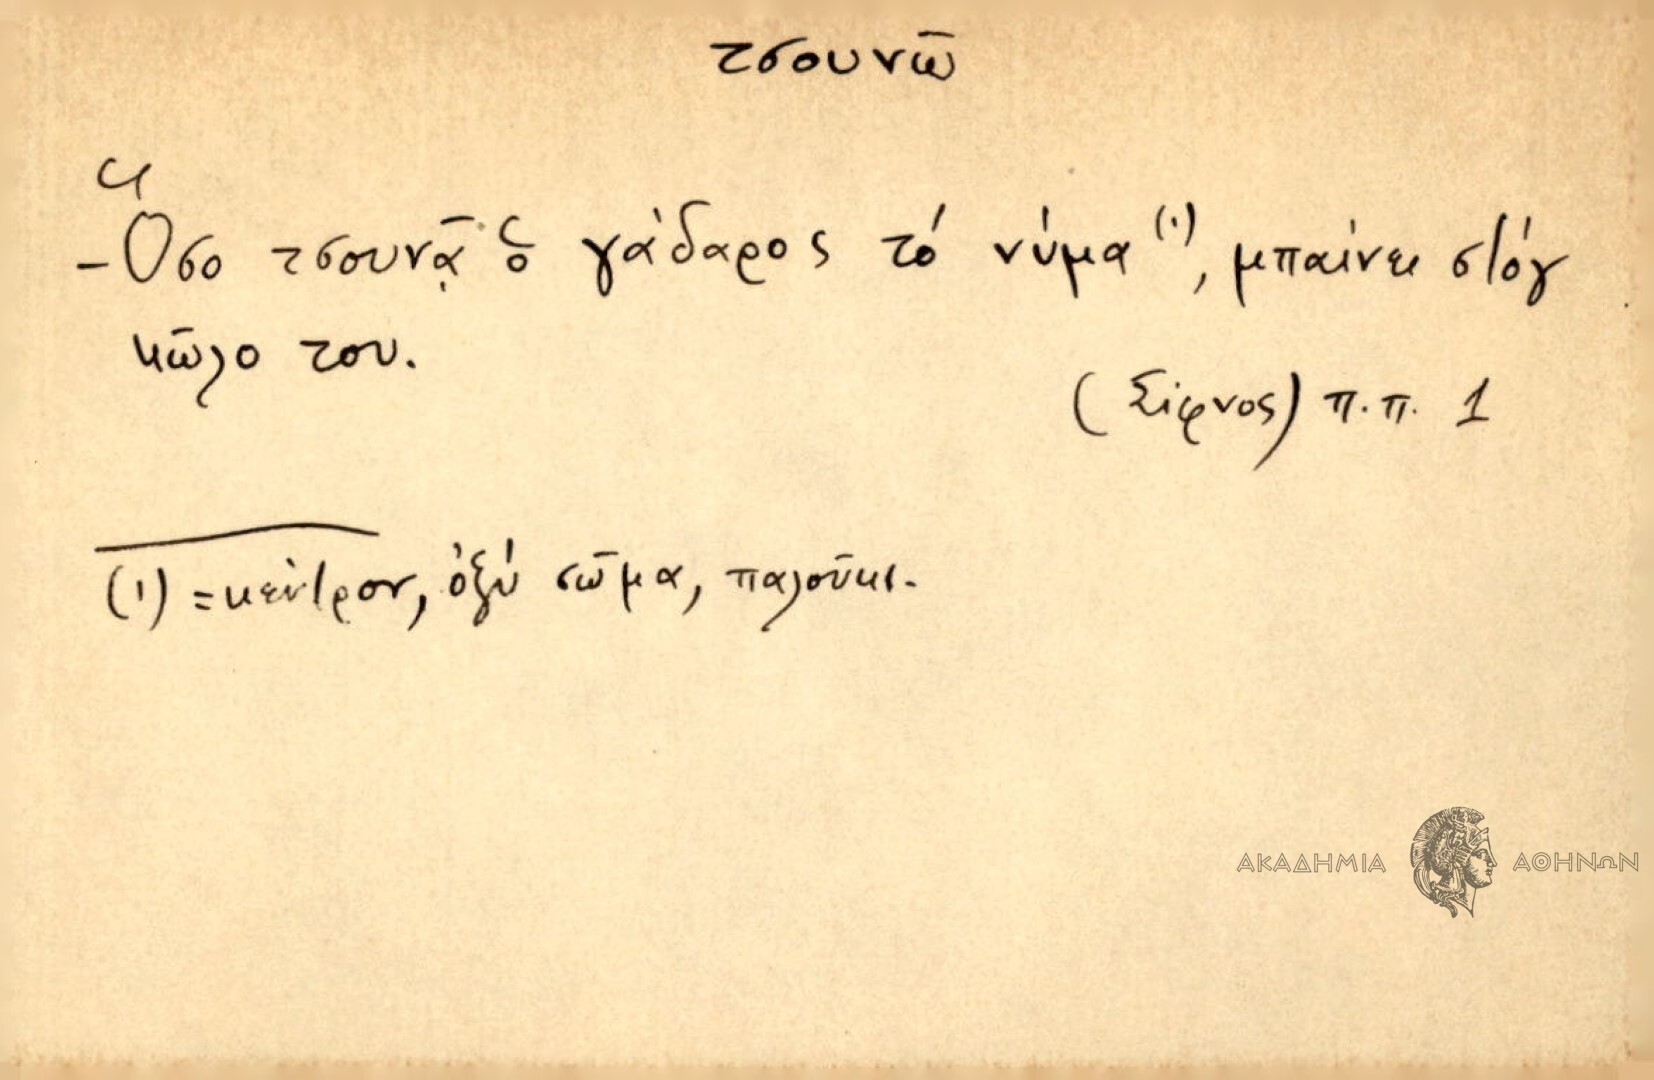 τσουνῶ
- Ὅσο τσουνᾷ ὁ γάδαρος τό νύμα (1), μπαίνει στόγ
κῶλο του.
(Σίφνος) π.π. 1
(1) = κέντρον, ὀξύ σῶμα, παλοῦκι.
ΑΚΑΔΗΜΙΑ ΑΘΗΝΩΝ